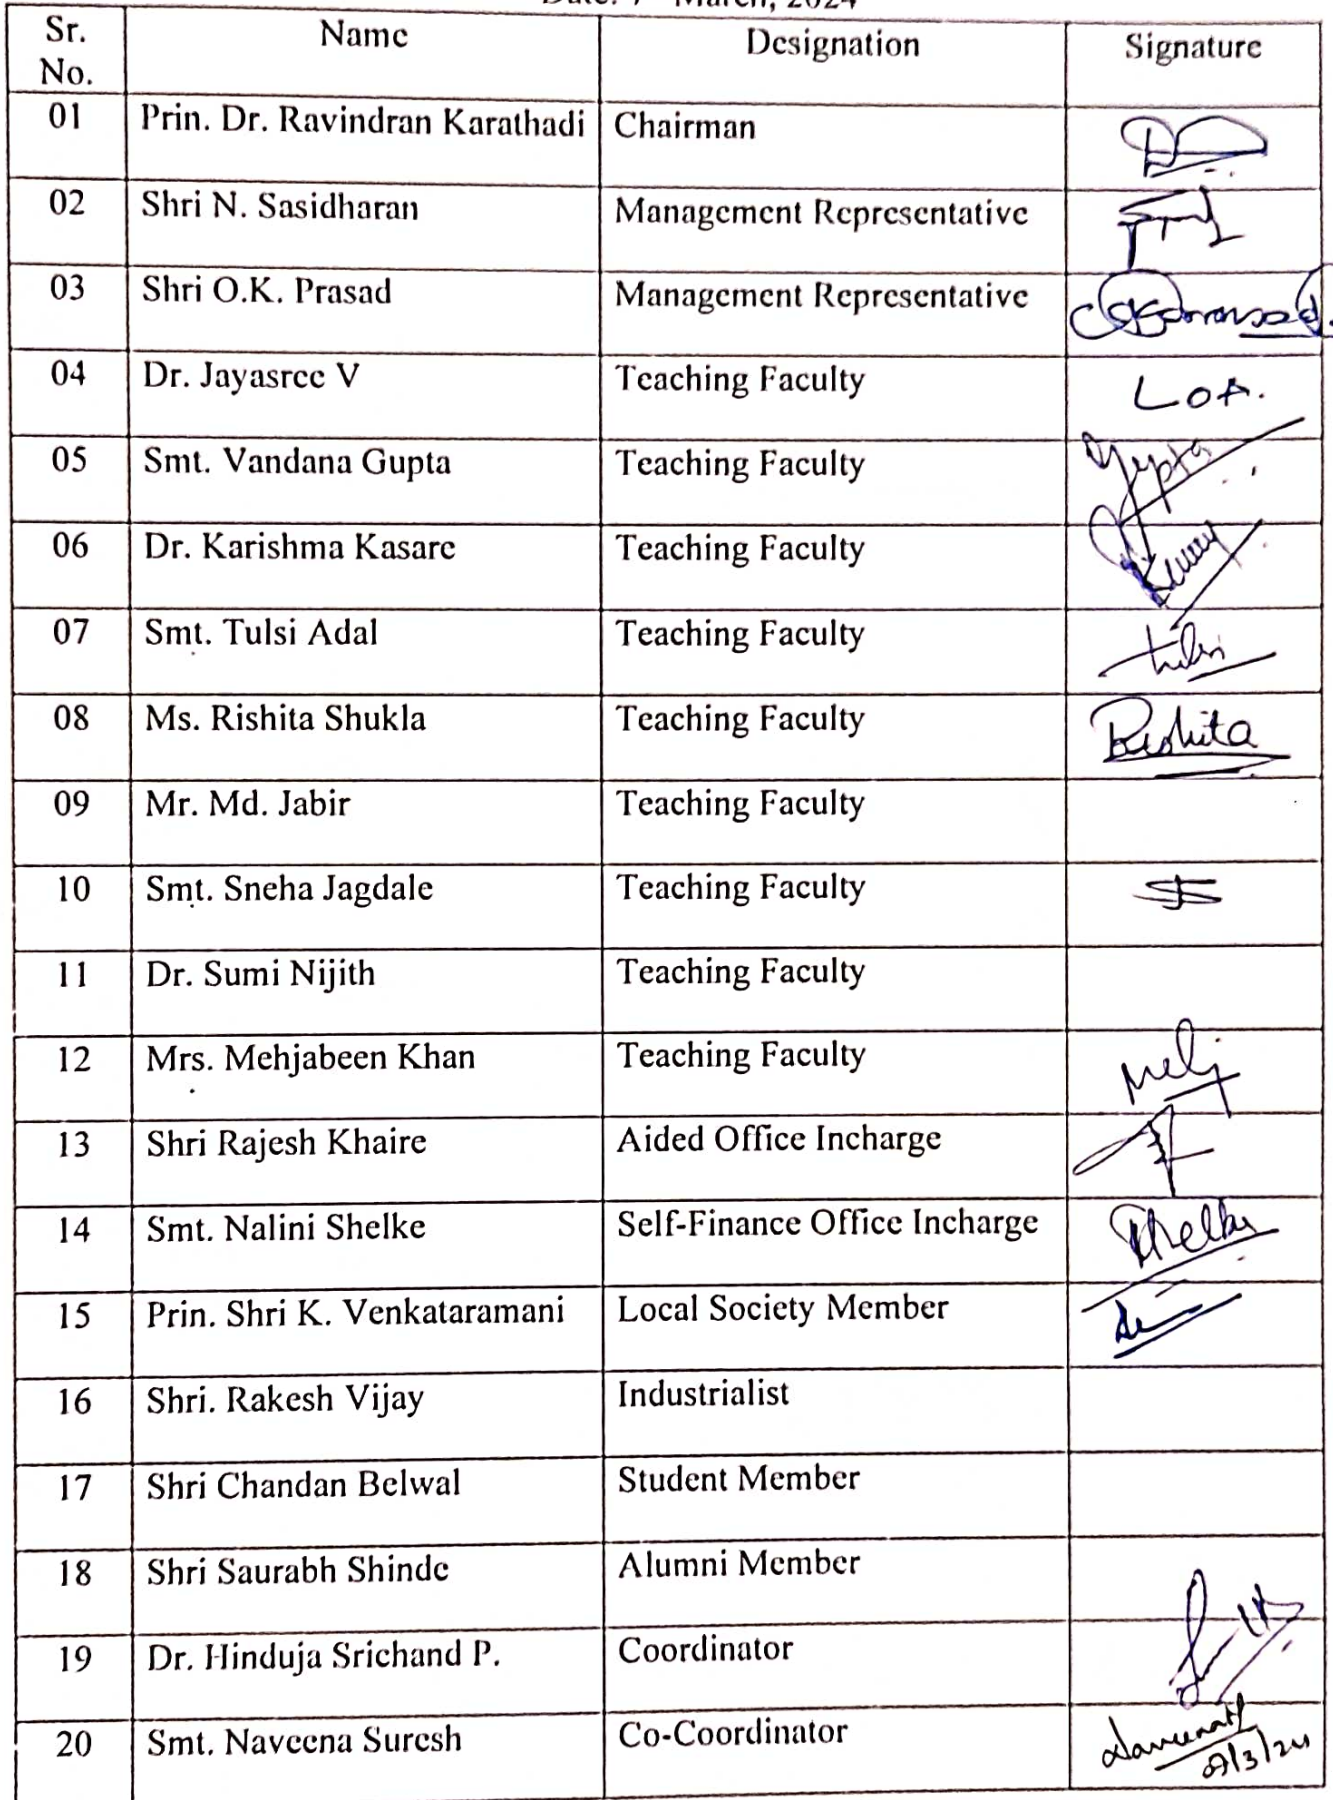 March, 2024
Sr. No. Name Designation Signature
01 Prin. Dr. Ravindran Karathadi Chairman
02 Shri N. Sasidharan Management Representative
03 Shri O.K. Prasad Management Representative
04 Dr. Jayasree V Teaching Faculty LOA.
05 Smt. Vandana Gupta Teaching Faculty Gupta
06 Dr. Karishma Kasare Teaching Faculty
07 Smt. Tulsi Adal Teaching Faculty tulsi
08 Ms. Rishita Shukla Teaching Faculty Rishita
09 Mr. Md. Jabir Teaching Faculty
10 Smt. Sneha Jagdale Teaching Faculty
11 Dr. Sumi Nijith Teaching Faculty
12 Mrs. Mehjabeen Khan Teaching Faculty Mehj
13 Shri Rajesh Khaire Aided Office Incharge
14 Smt. Nalini Shelke Self-Finance Office Incharge
15 Prin. Shri K. Venkataramani Local Society Member
16 Shri. Rakesh Vijay Industrialist
17 Shri Chandan Belwal Student Member
18 Shri Saurabh Shinde Alumni Member
19 Dr. Hinduja Srichand P. Coordinator
20 Smt. Naveena Suresh Co-Coordinator